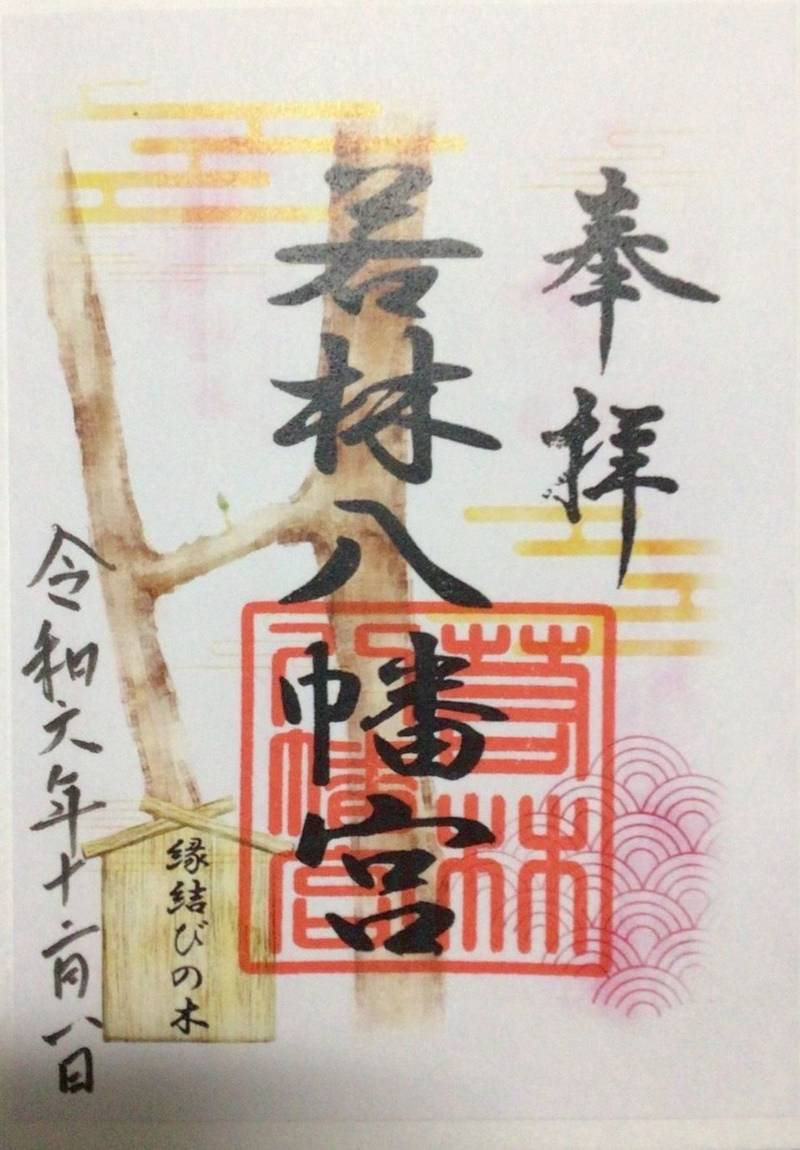 奉拝
若林八幡宮
若林八幡宮
縁結びの木
令和六年十二月八日